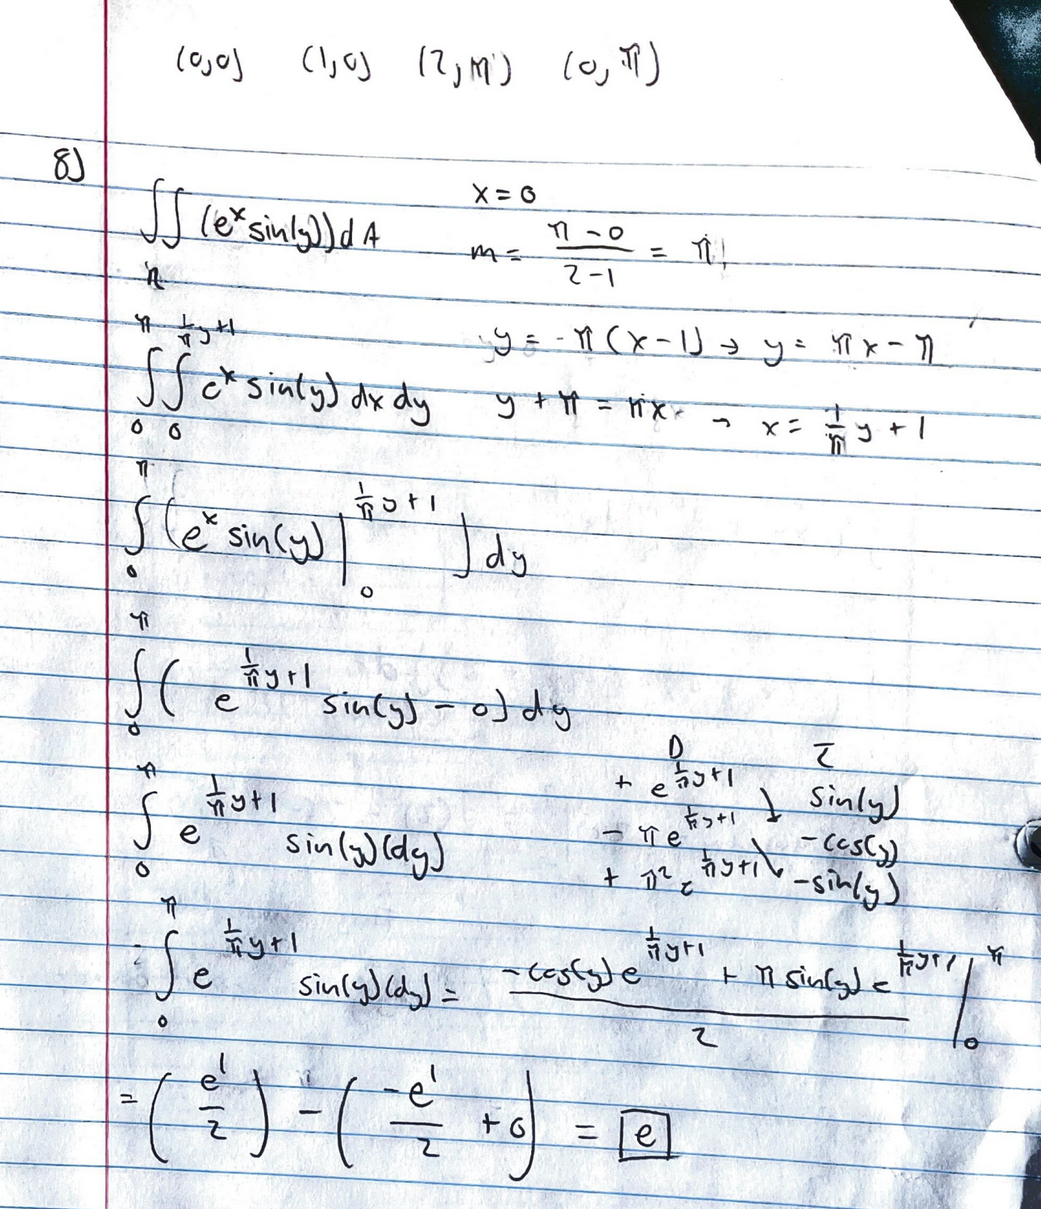 (0,0) (1,0) (2,π) (0,π)
8)
∬ (e^x sin(y)) dA
R
x = 0
m = (π - 0)/(2 - 1) = π
∫_0^π ∫_0^{1/π y+1} e^x sin(y) dx dy
y = π(x - 1) → y = πx - π
y + π = πx → x = 1/π y + 1
∫_0^π (e^x sin(y) |_0^{1/π y+1} ) dy
∫_0^π ( e^{1/π y+1} sin(y) - 0) dy
∫_0^π e^{1/π y+1} sin(y)(dy)
D I
+ e^{1/π y+1} sin(y)
- π e^{1/π y+1} -cos(y)
+ π² e^{1/π y+1} -sin(y)
∫_0^π e^{1/π y+1} sin(y)(dy) = (-cos(y) e^{1/π y+1} + π sin(y) e^{1/π y+1})/2 |_0^π
= (e^1/2) - (-e^1/2 + 0) = e